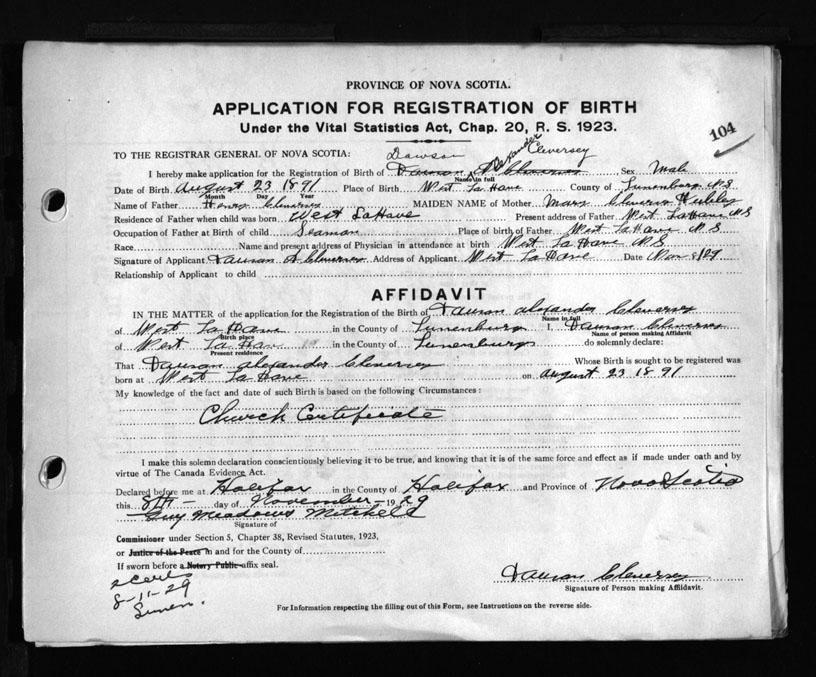 PROVINCE OF NOVA SCOTIA.
APPLICATION FOR REGISTRATION OF BIRTH
Under the Vital Statistics Act, Chap. 20, R. S. 1923.
104
TO THE REGISTRAR GENERAL OF NOVA SCOTIA: Dawson Alexander Cleversey
I hereby make application for the Registration of Birth of Dauson A Cleversey Sex Male
Name in full
Date of Birth August 23 1891 Place of Birth West La Have County of Lunenburg N S
Month Day Year
Name of Father Henry Cleversey MAIDEN NAME of Mother Mary Cleversey Hubley
Residence of Father when child was born West LaHave Present address of Father West LaHave N S
Occupation of Father at Birth of child Seaman Place of birth of Father West La Have N S
Race Name and present address of Physician in attendance at birth West La Have N S
Signature of Applicant Dauson A Cleversey Address of Applicant West La Have Date Nov 8/29
Relationship of Applicant to child
AFFIDAVIT
IN THE MATTER of the application for the Registration of the Birth of Dauson alexander Cleversey
Name in full
of West La Have in the County of Lunenburg I, Dauson Cleversey
Birth place Name of person making Affidavit
of West La Have in the County of Lunenburg do solemnly declare:
Present residence
That Dauson alexander Cleversey Whose Birth is sought to be registered was
born at West La Have on august 23 1891
My knowledge of the fact and date of such Birth is based on the following Circumstances:
Church Certificate
I make this solemn declaration conscientiously believing it to be true, and knowing that it is of the same force and effect as if made under oath and by
virtue of The Canada Evidence Act.
Declared before me at Halifax in the County of Halifax and Province of Nova Scotia
this 8th day of November 1929
Guy Meadows Mitchell
Signature of
Commissioner under Section 5, Chapter 38, Revised Statutes, 1923,
or Justice of the Peace in and for the County of
If sworn before a Notary Public affix seal.
8-11-29
Dauson Cleversey
Signature of Person making Affidavit.
For Information respecting the filling out of this Form, see Instructions on the reverse side.